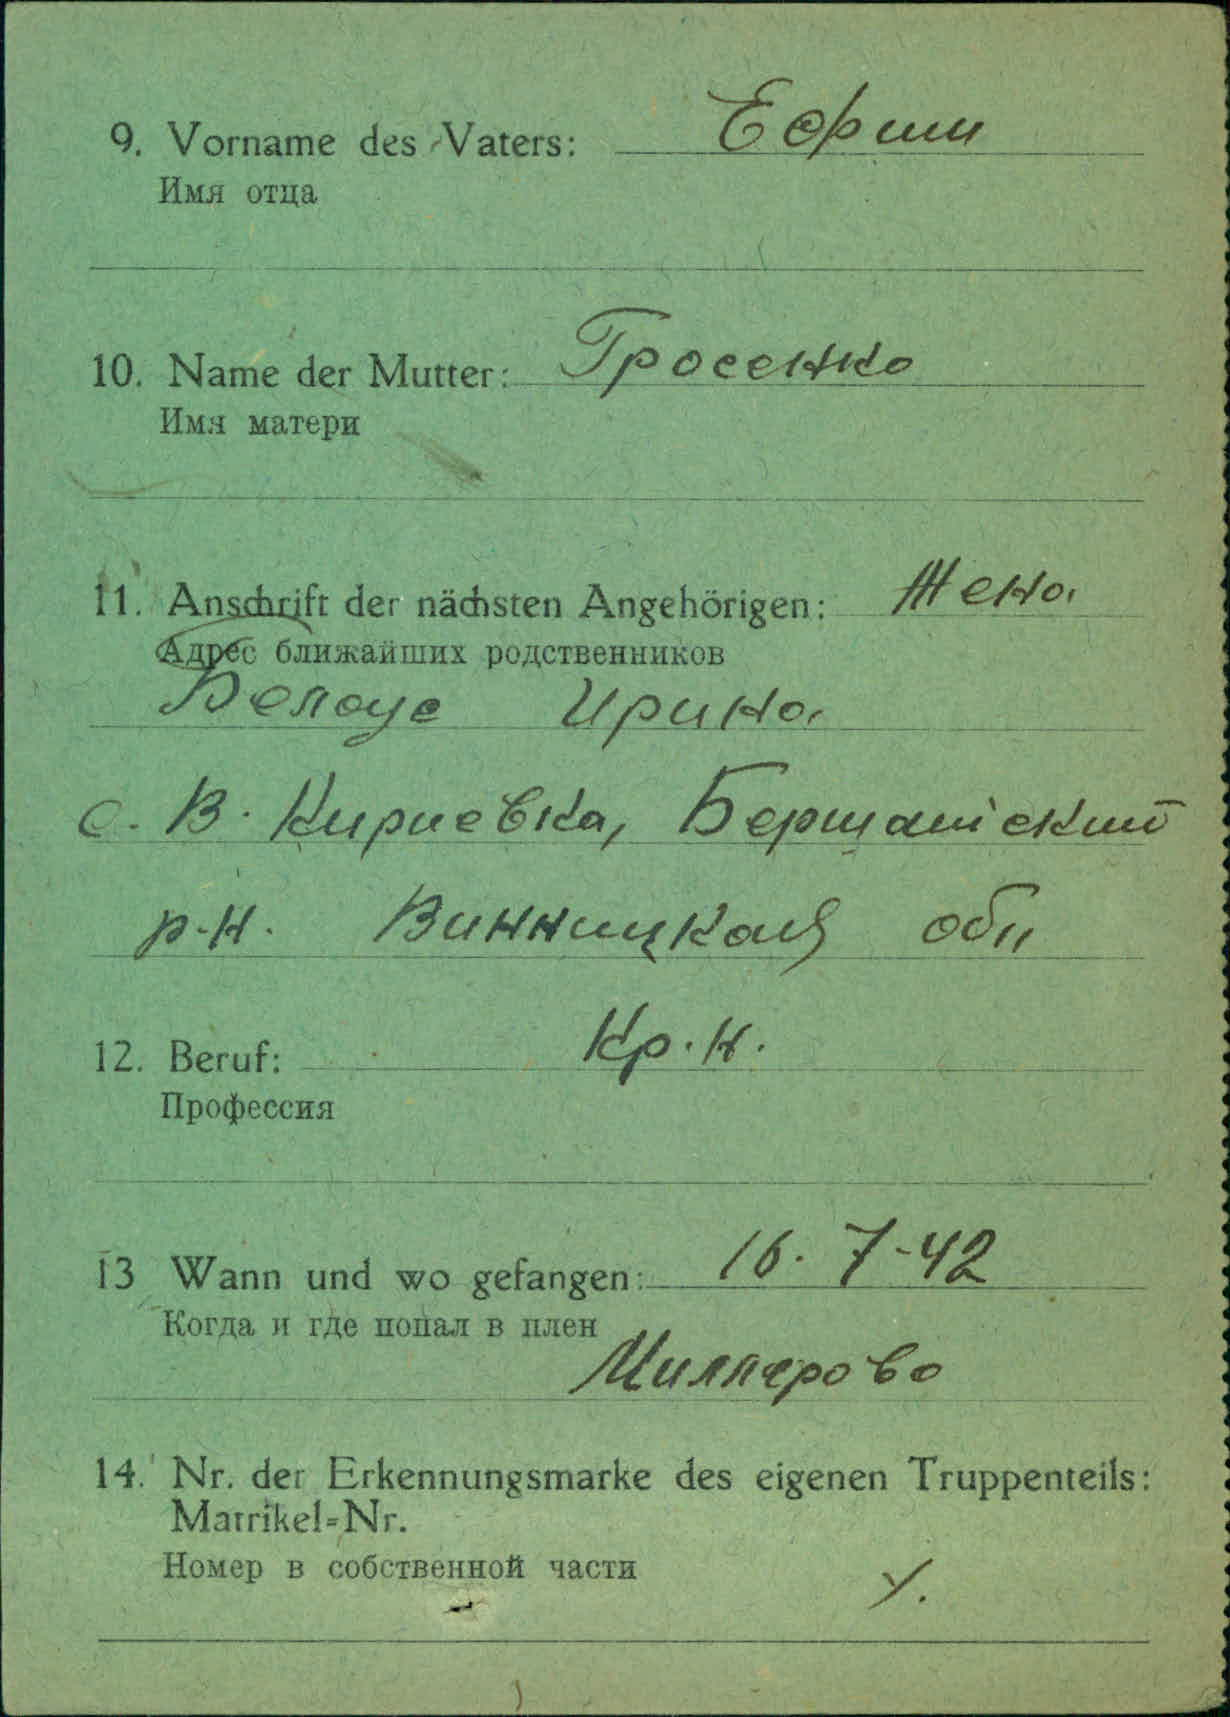 9. Vorname des Vaters: Ефрим
Имя отца
10. Name der Mutter: Гросенко
Имя матери
11. Anschrift der nächsten Angehörigen: Жена
Адрес ближайших родственников
Белоус Ирина
с. В. Кириевка, Бершадский
р.н. Винницкая обл
12. Beruf: Кр.н.
Профессия
13 Wann und wo gefangen: 16. 7-42
Когда и где попал в плен
Миллерово
14. Nr. der Erkennungsmarke des eigenen Truppenteils:
Matrikel-Nr.
Номер в собственной части